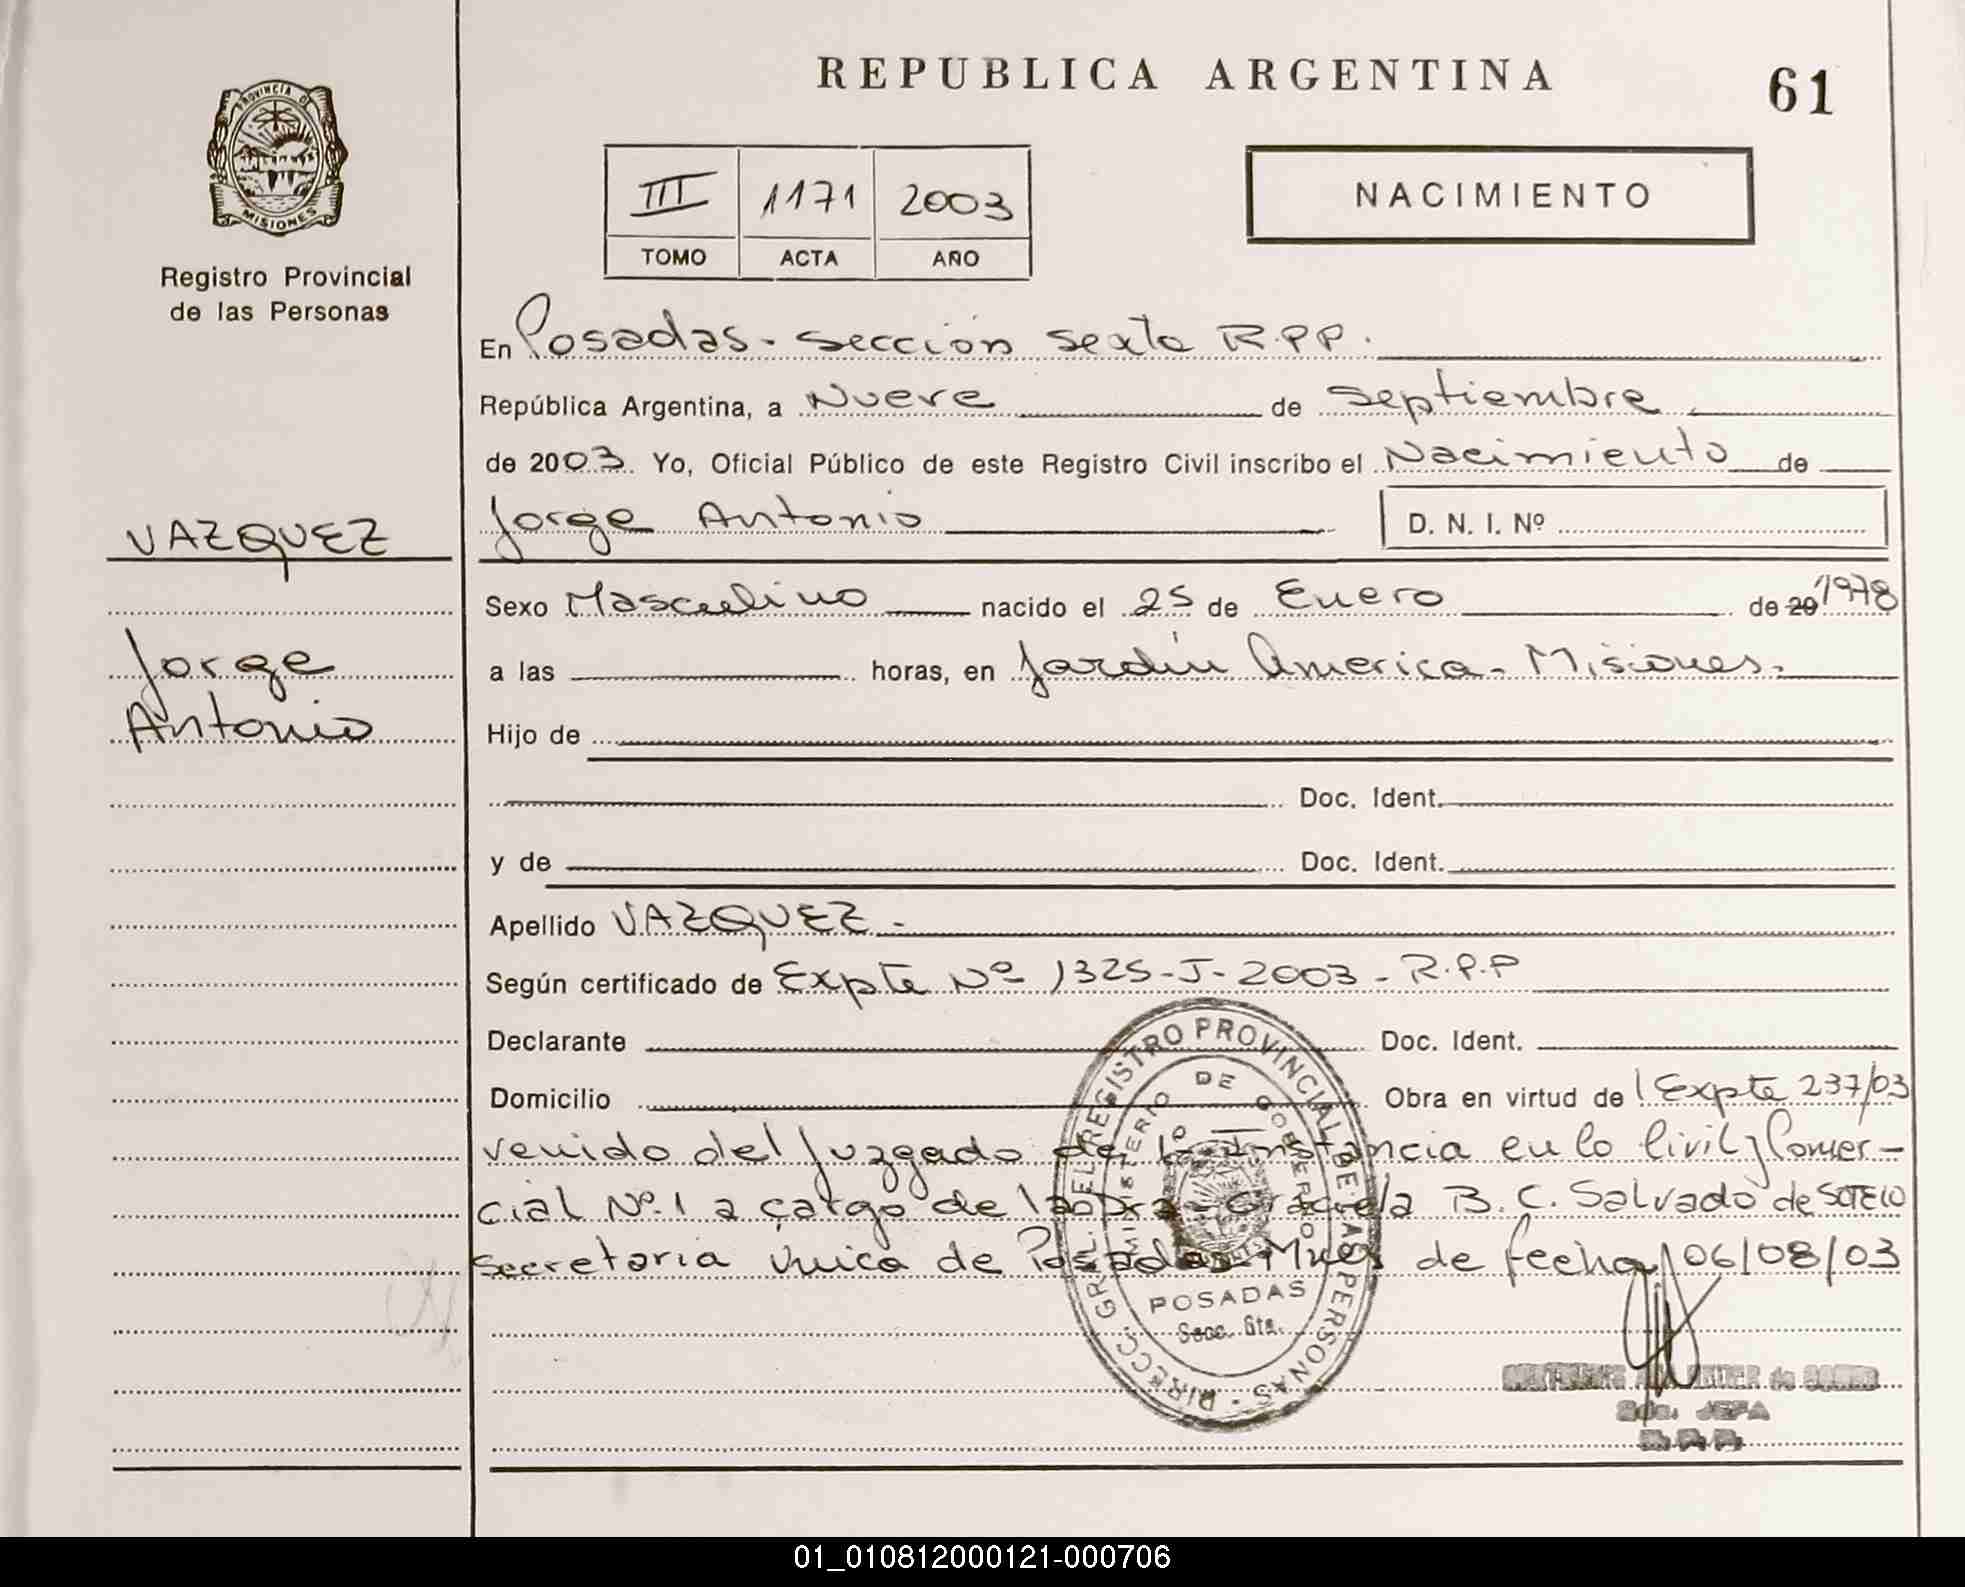 REPUBLICA ARGENTINA
61
PROVINCIA D
MISIONES
Registro Provincial
de las Personas
III 1171 2003
TOMO ACTA AÑO
NACIMIENTO
En Posadas - sección sexta R.P.P.
República Argentina, a Nueve de septiembre
de 2003. Yo, Oficial Público de este Registro Civil inscribo el Nacimiento de
VAZQUEZ
Jorge Antonio
D. N. I. Nº
Sexo Masculino nacido el 25 de Enero de 20 1978
Jorge
a las horas, en Jardín America - Misiones.
Antonio
Hijo de
Doc. Ident.
y de Doc. Ident.
Apellido VAZQUEZ.-
Según certificado de Expte Nº 1325-J-2003-R.P.P
Declarante Doc. Ident.
Domicilio Obra en virtud de Expte 237/03
venido del Juzgado de 1º Instancia en lo Civil y Comer-
cial Nº.1 a cargo de la Dra. Graciela B. C. Salvado de SOTELO
secretaria única de Posadas Mnes de fecha 06/08/03
DIRECC. GRAL. DEL REGISTRO PROVINCIAL DE LAS PERSONAS
MINISTERIO DE GOBIERNO
POSADAS
Secc. 6ta.
de
Sdo. JEFA
R.P.P.
01_010812000121-000706